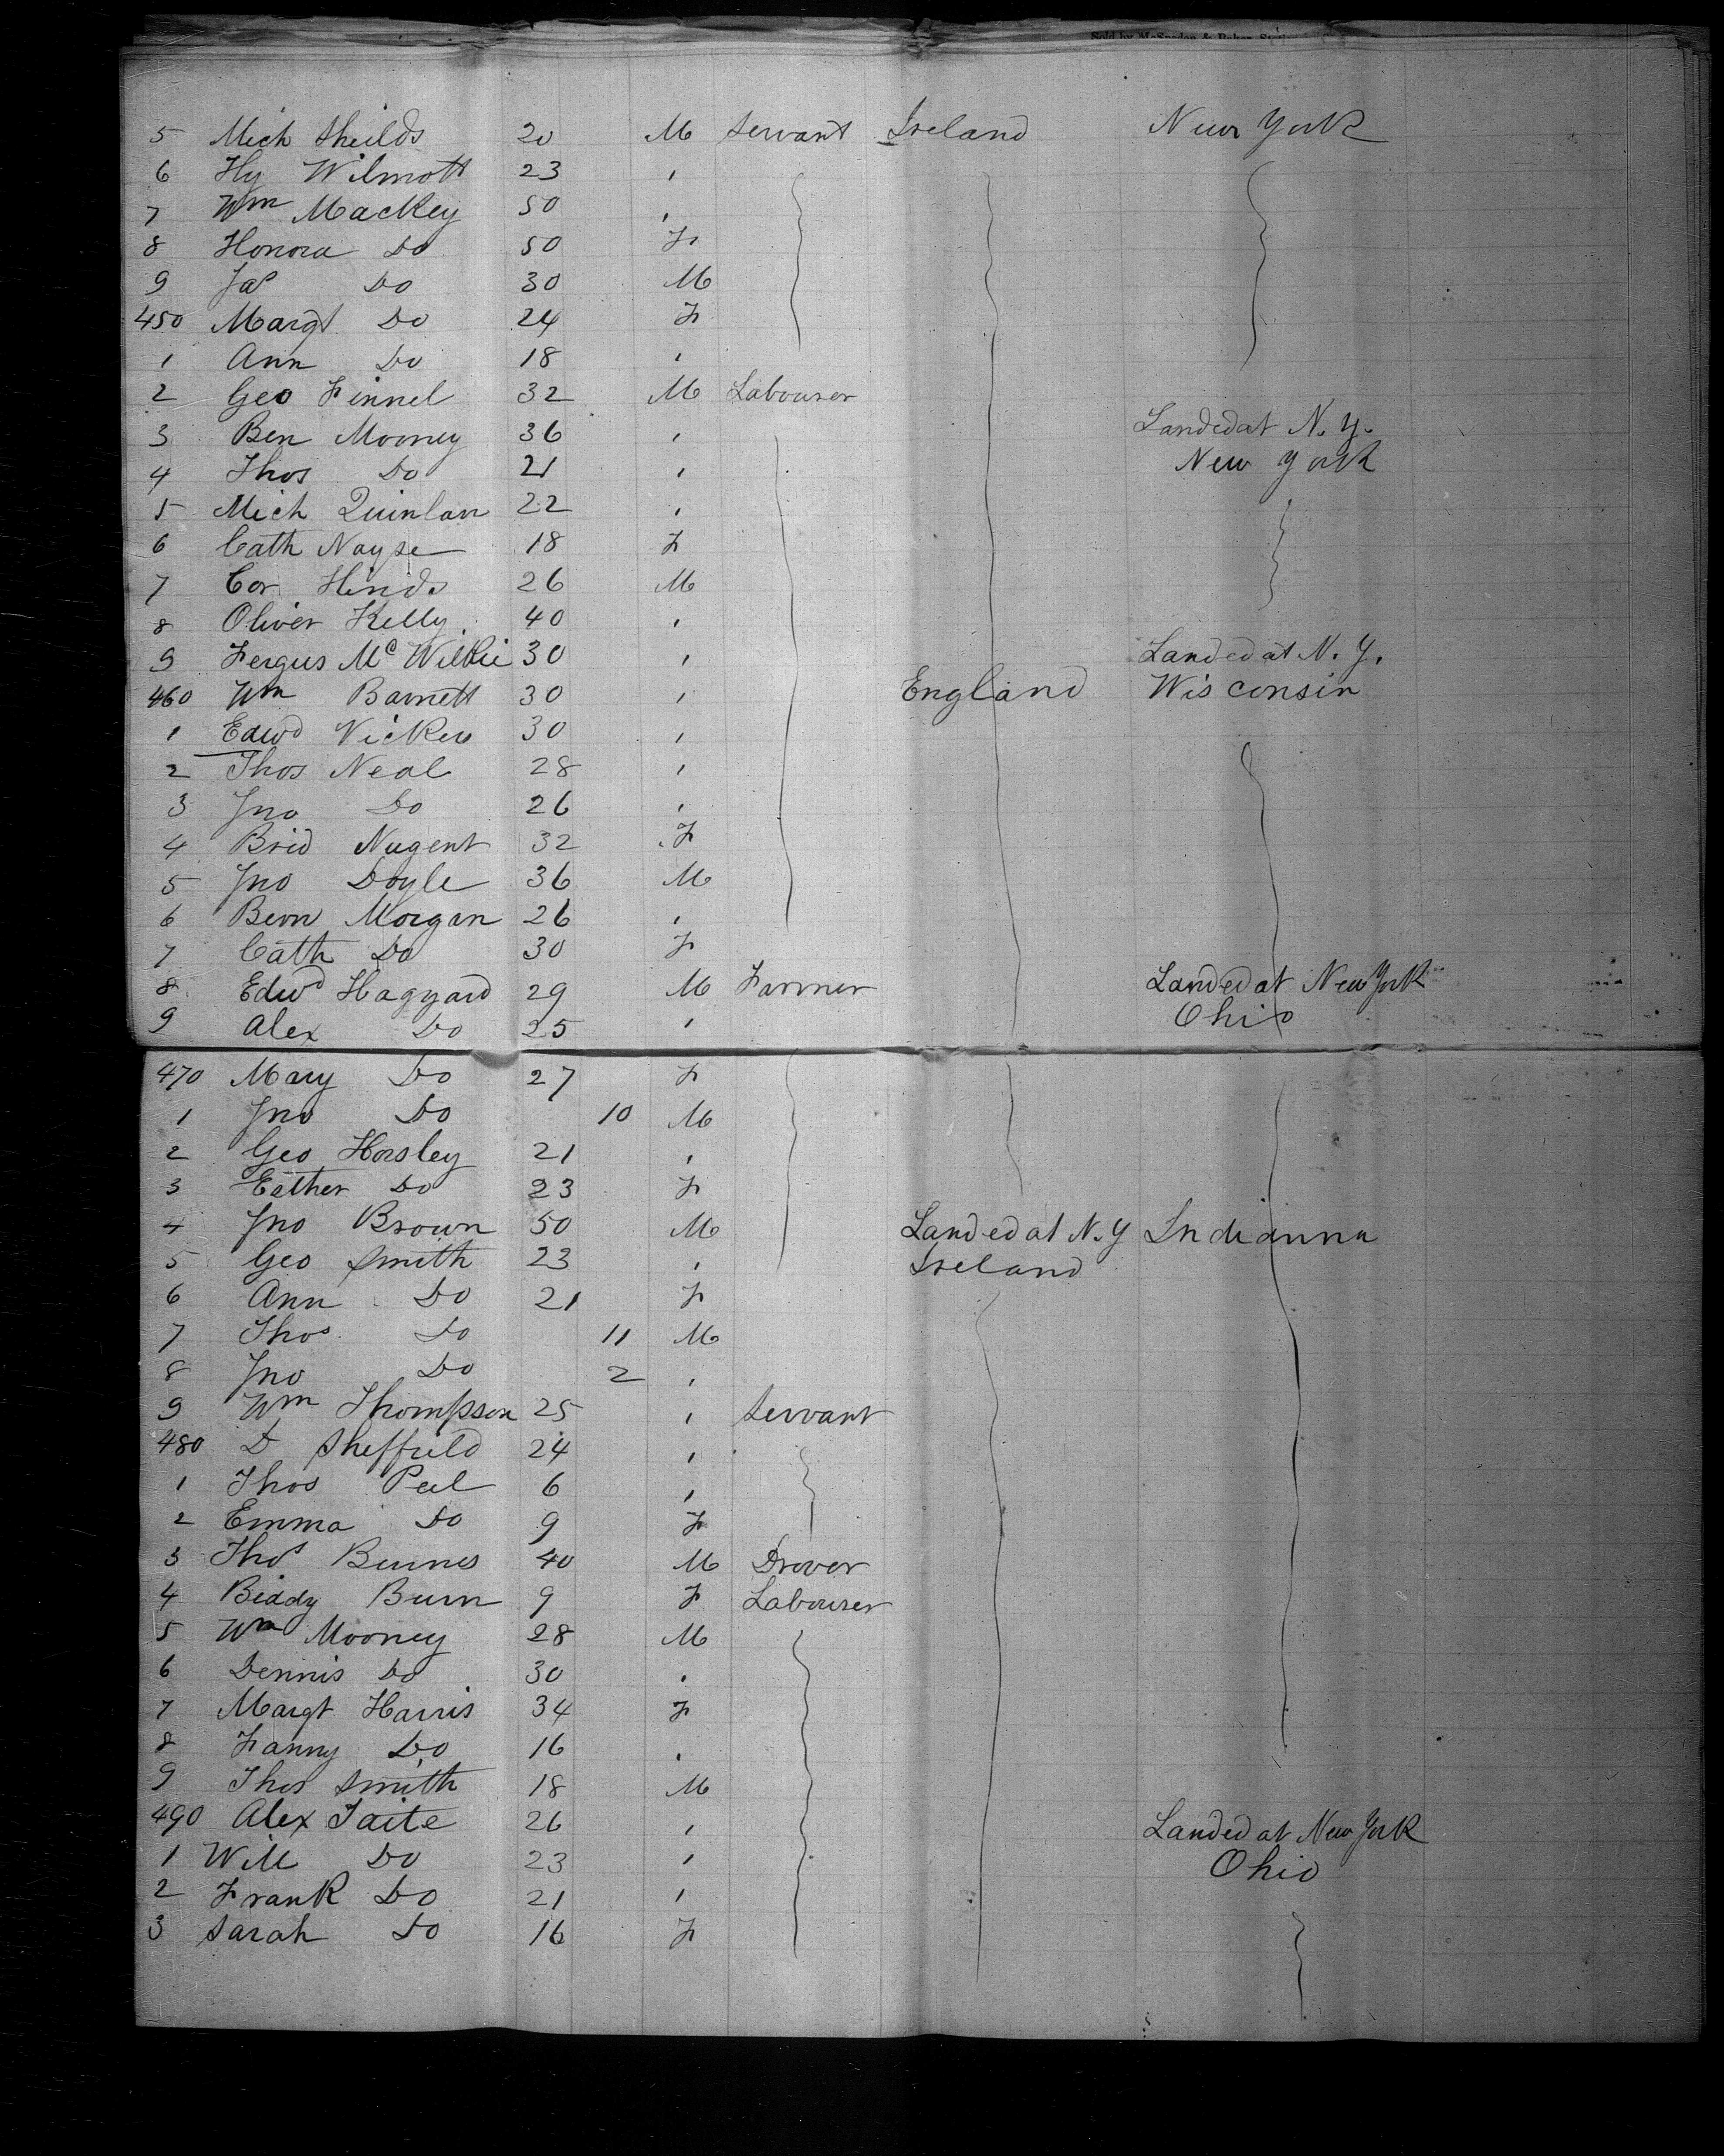 Sold by McSpedon & Baker
5 Mich Sheilds 20 M Servant Ireland New York
6 Hy Wilmott 23 "
7 Wm Mackey 50 "
8 Honora Do 50 F
9 Jas Do 30 M
450 Margt Do 24 F
1 Ann Do 18 "
2 Geo Finnel 32 M Labourer
Landed at N. Y.
3 Ben Mooney 36 "
4 Thos Do 21 " New York
5 Mich Quinlan 22 "
6 Cath Nayse 18 F
7 Cor Hinds 26 M
8 Oliver Kelly 40 "
9 Fergus Mc Wilkie 30 " Landed at N. Y.
460 Wm Barnett 30 " England Wisconsin
1 Edwd Vickers 30 "
2 Thos Neal 28 "
3 Jno Do 26 "
4 Brid Nugent 32 F
5 Jno Doyle 36 M
6 Bern Morgan 26 "
7 Cath Do 30 F
8 Edwd Hagyard 29 M Farmer Landed at New York
9 Alex Do 25 " Ohio
470 Mary Do 27 F
1 Jno Do 10 M
2 Geo Horsley 21 "
3 Esther Do 23 F
4 Jno Brown 50 M Landed at N. Y Indianna
5 Geo Smith 23 " Ireland
6 Ann Do 21 F
7 Thos Do 11 M
8 Jno Do 2 "
9 Wm Thompson 25 " Servant
480 D Sheffield 24 "
1 Thos Peel 6 "
2 Emma Do 9 F
3 Thos Burnes 40 M Drover
4 Biddy Burn 9 F Labourer
5 Wm Mooney 28 M
6 Dennis Do 30 "
7 Margt Harris 34 F
8 Fanny Do 16 "
9 Thos Smith 18 M
490 Alex Taite 26 " Landed at New York
1 Will Do 23 " Ohio
2 Frank Do 21 "
3 Sarah Do 16 F